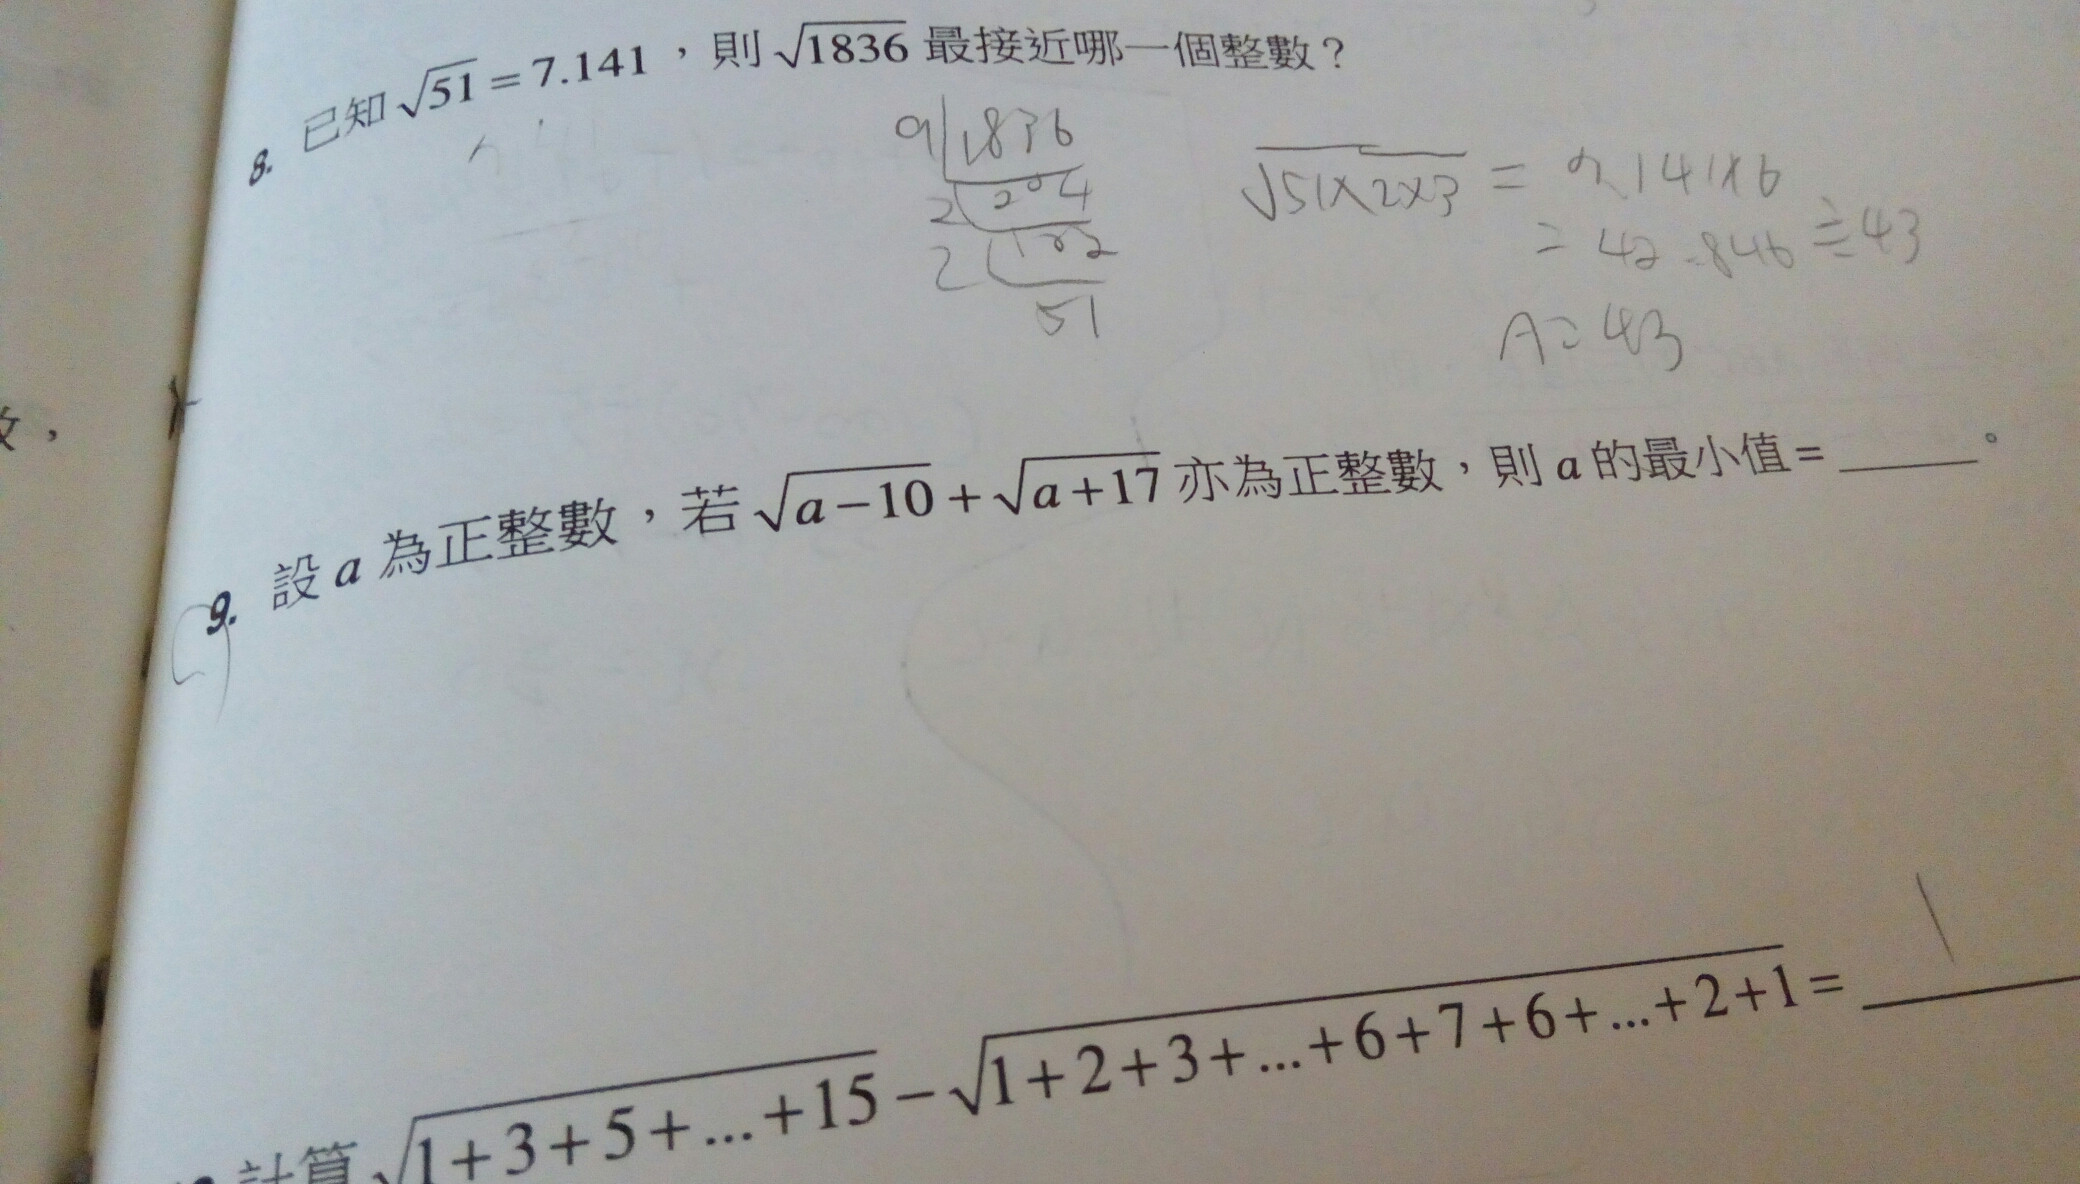 8. 已知√51=7.141，則√1836 最接近哪一個整數？
9|1836
2|204
2|102
51
√51×2×3 = 7.141×6
= 42.846≒43
A=43
9. 設 a 為正整數，若√a−10+√a+17 亦為正整數，則 a 的最小值=_____。
計算√1+3+5+...+15−√1+2+3+...+6+7+6+...+2+1=_____
1